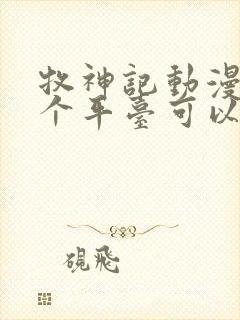 牧神記動漫
个平臺可以
硯飛